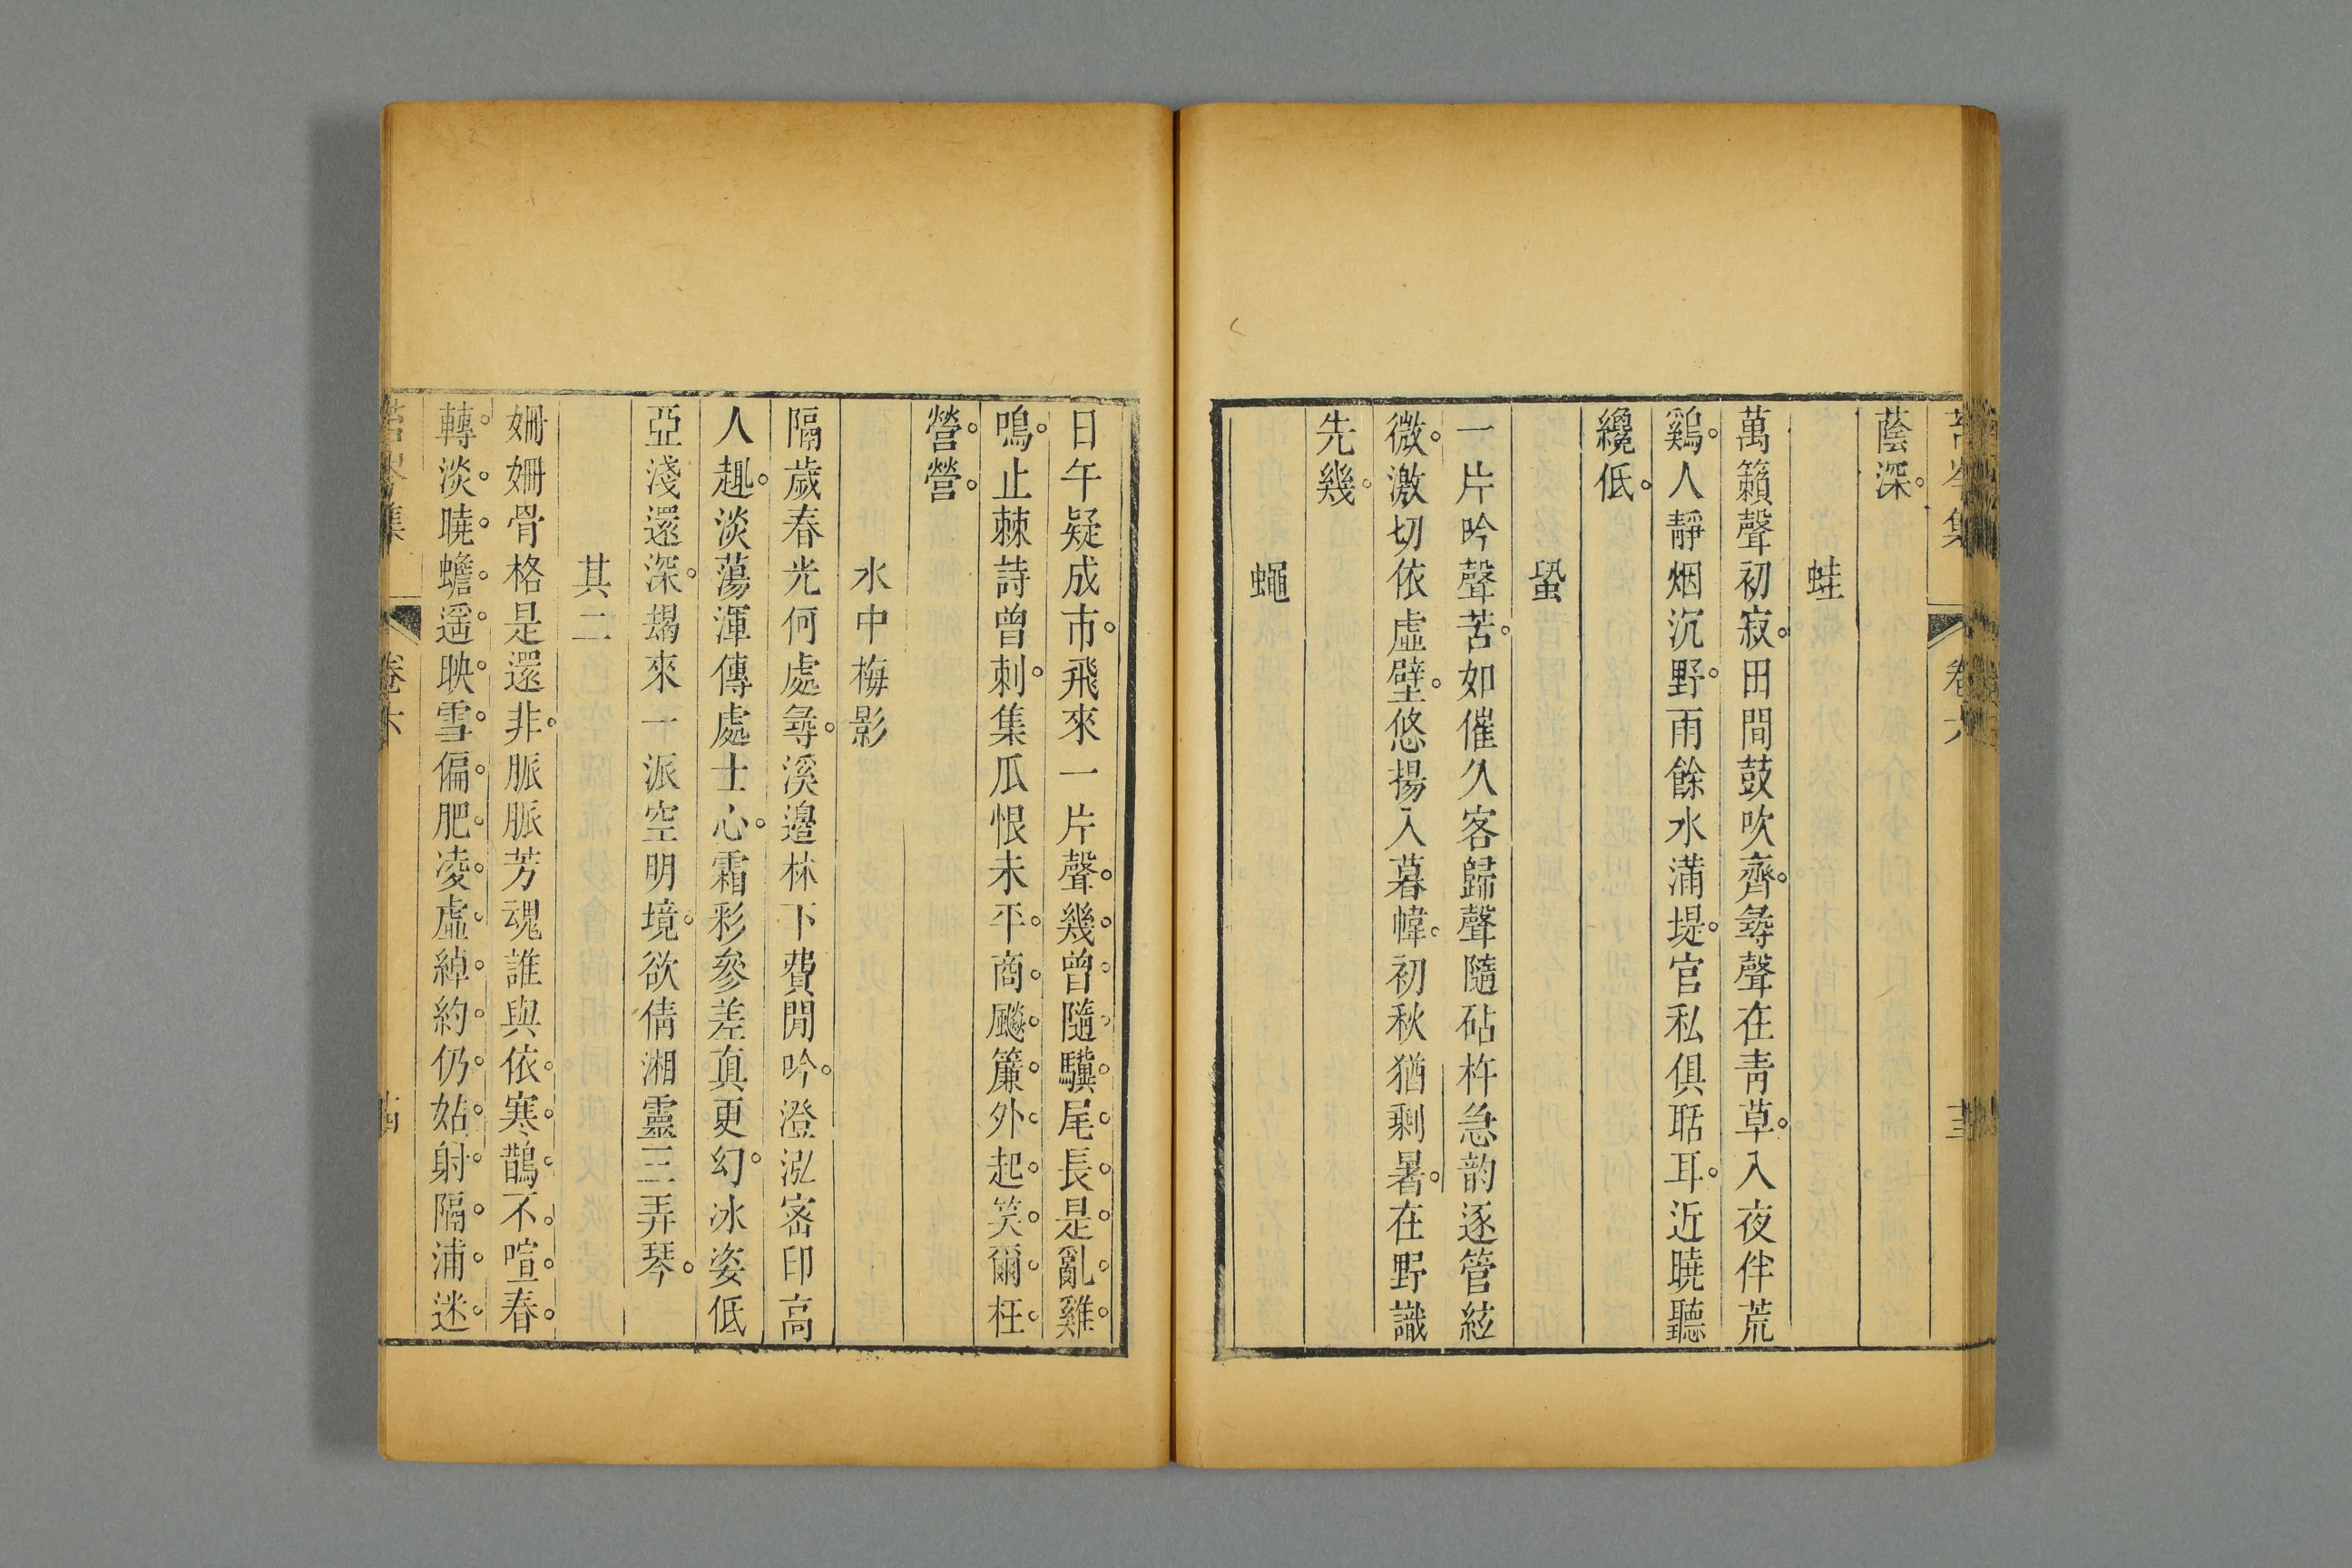 苔岑集 卷六
蔭深。
蛙
萬籟聲初寂。田間鼓吹齊。尋聲在青草。入夜伴荒
鷄。人靜烟沉野。雨餘水滿堤。官私俱聒耳。近曉聽
纔低。
蛩
一片吟聲苦。如催久客歸聲隨砧杵急韵逐管絃
微。激切依虛壁。悠揚入暮幃。初秋猶剩暑。在野識
先幾。
蠅
日午疑成市。飛來一片聲。幾。曾。隨。驥。尾。長。是。亂。雞。
鳴。止棘詩曾刺。集瓜恨未平。商。飈。簾。外。起。笑。爾。枉。
營。營。
水中梅影
隔歲春光何處尋。溪邉林下費閒吟。澄泓宻印高
人趣。淡蕩渾傳處士心。霜彩參差真更幻。冰姿低
亞淺還深。朅來一派空明境。欲倩湘靈三弄琴。
其二
姍姍骨格是還非。脈脈芳魂誰與依。寒。鵲。不。喧。春。
轉。淡。曉。蟾。遥。映。雪。偏。肥。凌。虛。綽。約。仍。姑。射。隔。浦。迷。
苔岑集 卷六